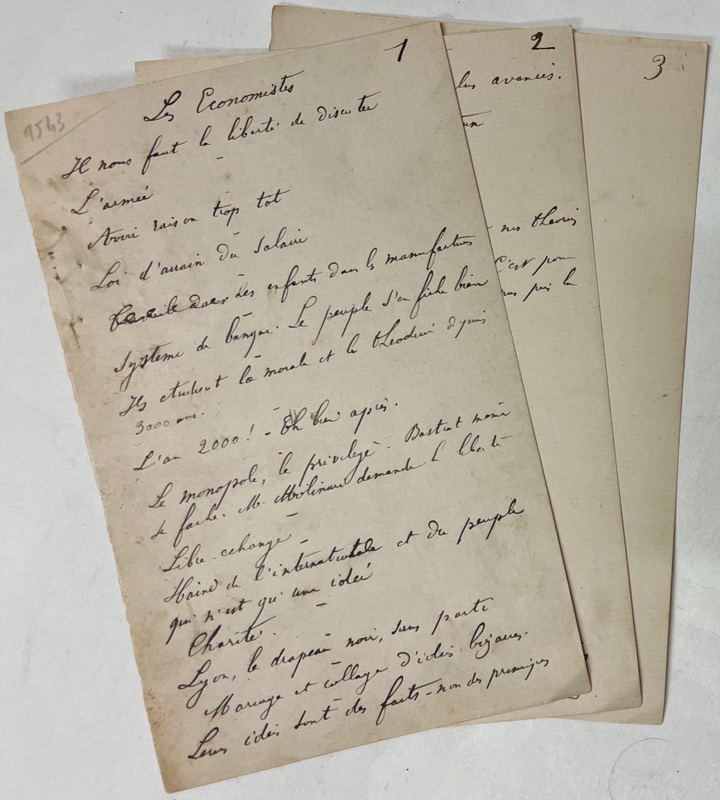 1
9543
Les Economistes
Il nous faut la liberté de discuter
L'armée
Avoir raison trop tot
Loi d'airain du Salaire
Les enfants dans les manufactures
Système de banque. Le peuple s'en fiche bien
Ils étudient la morale et la
3000 ans.
L'an 2000! - Eh bien après.
Le monopole, le privilège. Bastiat même
se fache. M. Molinari demande la liberté
Libre-echange
Haine de l'internationale et du peuple
qui n'est qu'une idée
Charité.
Lyon, le drapeau noir, sans parti
Mariage et collage d'idées bizarres.
Leurs idées sont des faits - non des principes
2
plus avancés.
nos théories
C'est pour
pas la
3